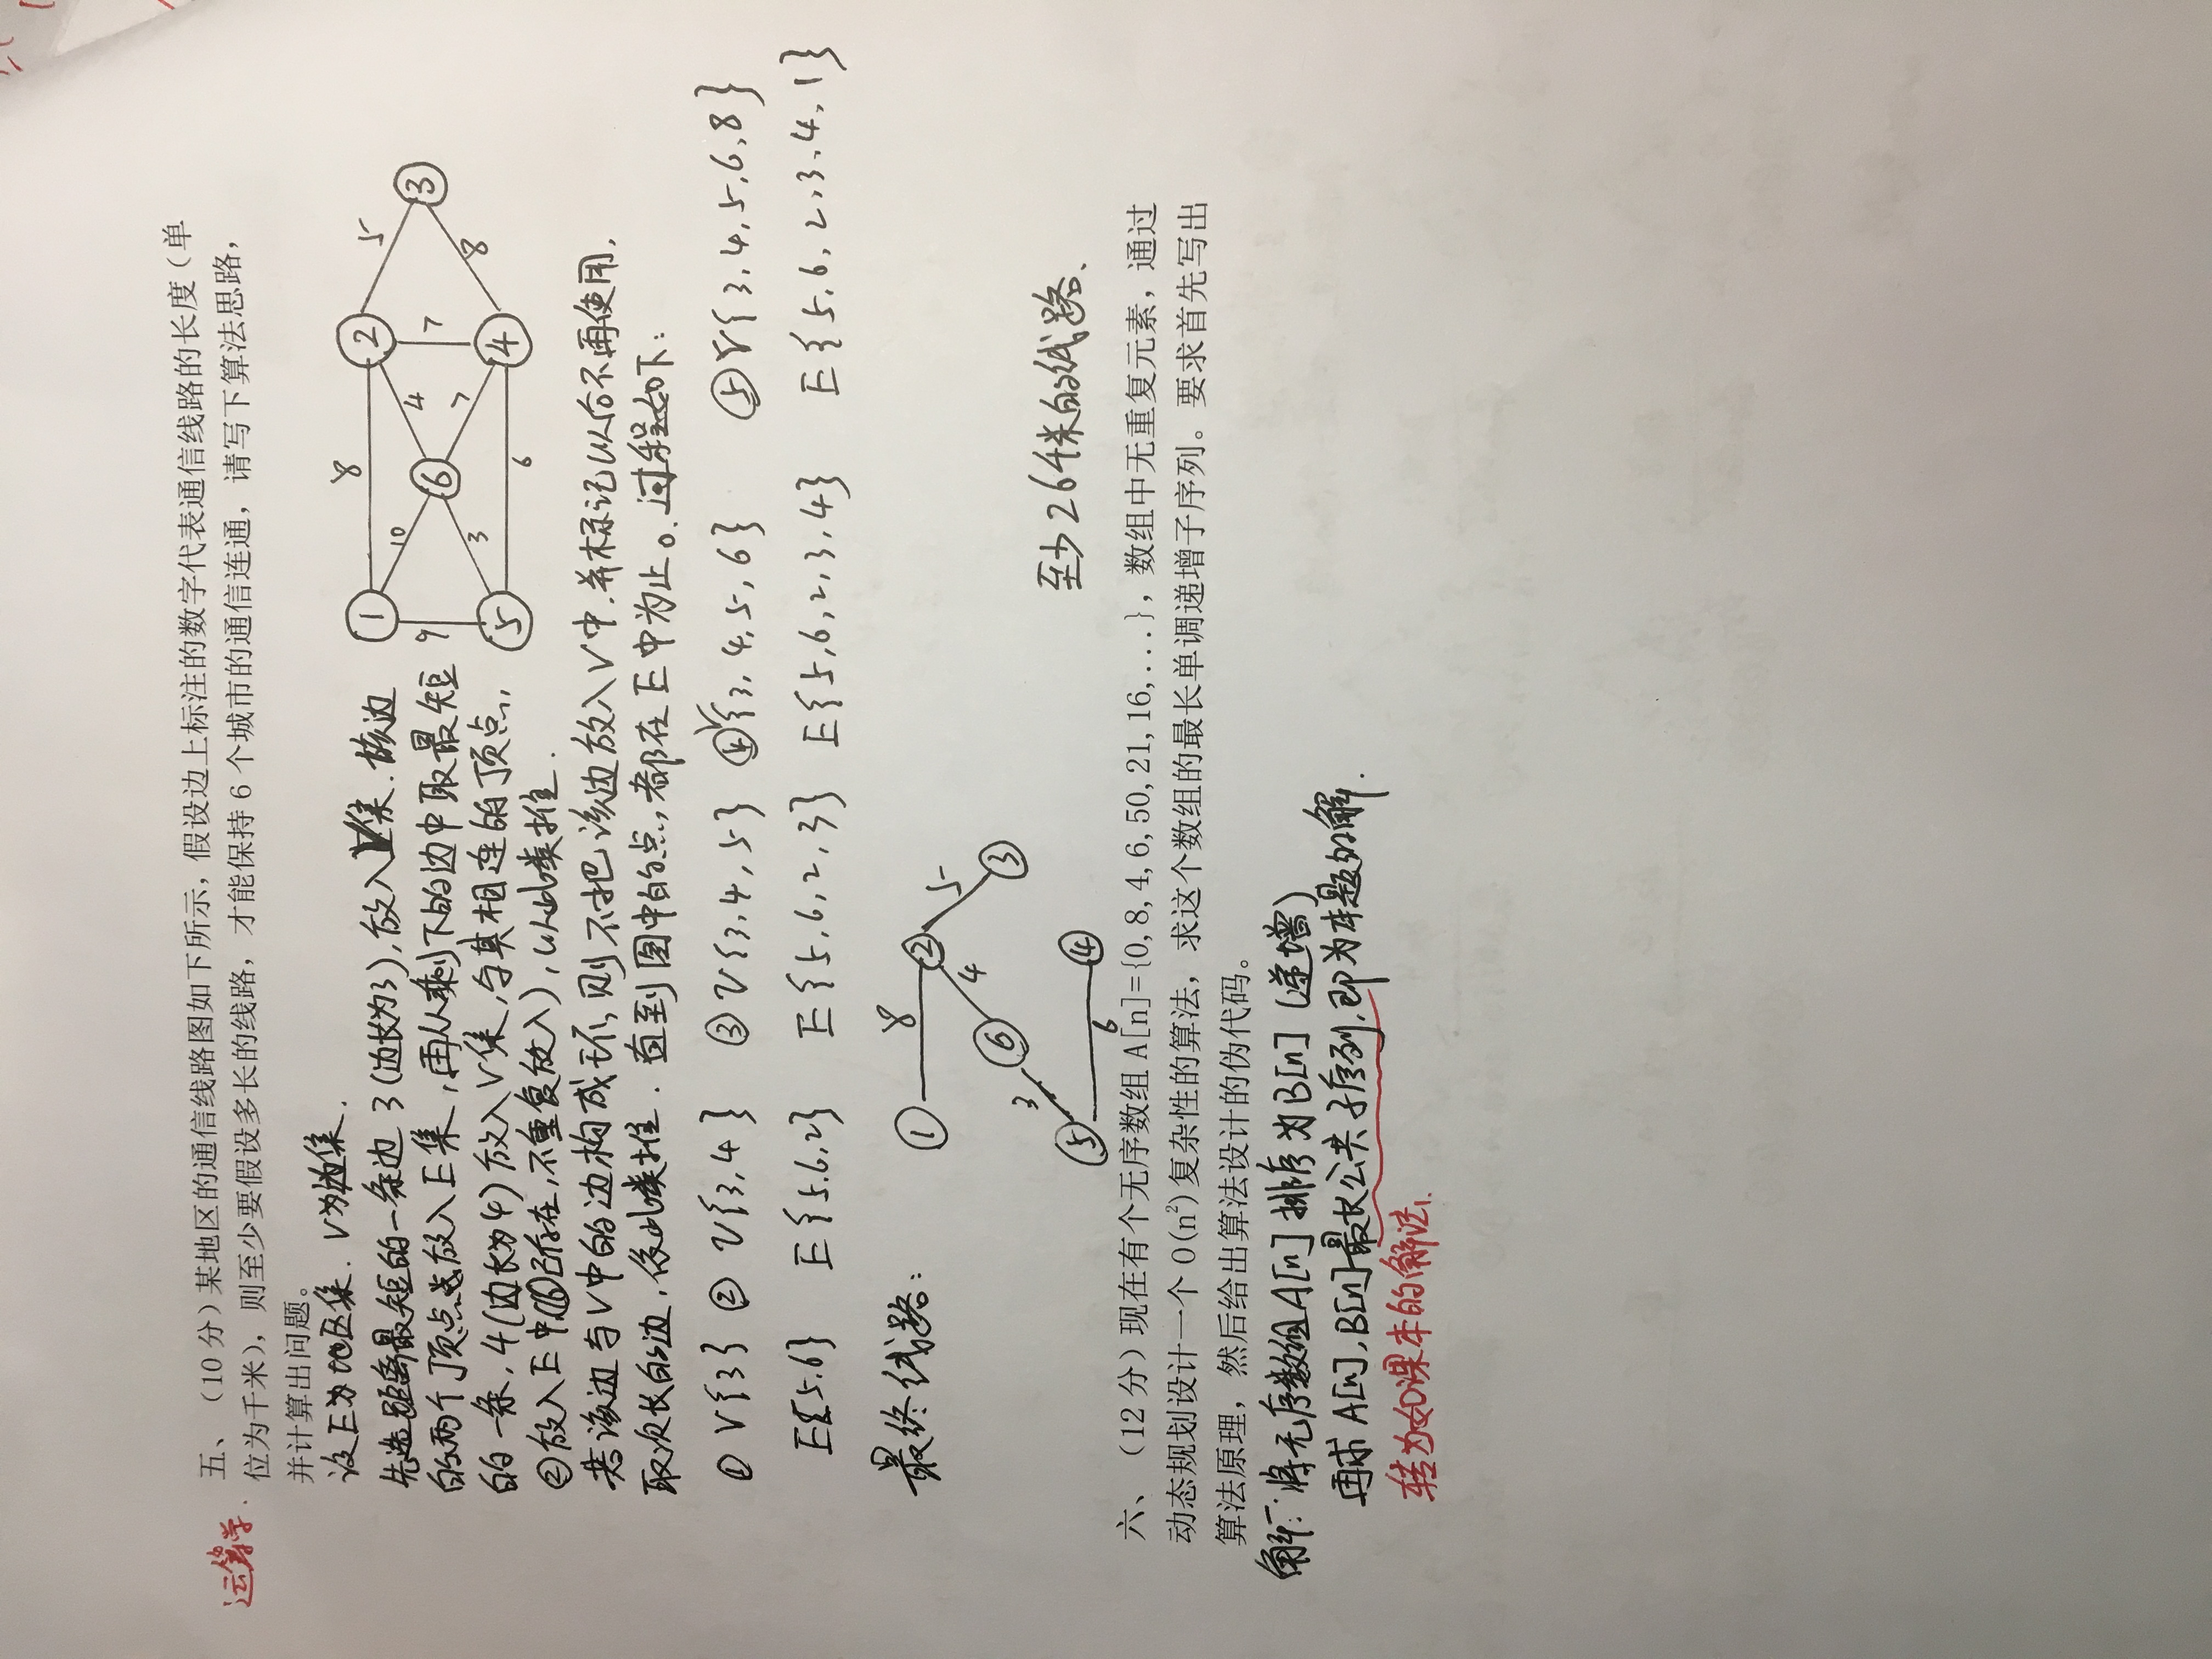 五、（10 分）某地区的通信线路图如下所示，假设边上标注的数字代表通信线路的长度（单
运筹学.
位为千米），则至少要假设多长的线路，才能保持 6 个城市的通信连通，请写下算法思路，
并计算出问题。
设E为地区集. V为边集.
先选距离最短的一条边 3（边长为3），放入V集. 该边
的两个顶点放入E集，再从剩下的边中取最短
的一条，4（边长为4）放入V集，与其相连的顶点，
②放入E中（⑥已存在，不重复放入），以此类推.
1 8 2 5 3
10 4 9 6 7
7 8
5 3 6 4
若该边与V中的边构成环，则不把该边放入V中.并标记以后不再使用，
取次长的边，依此类推. 直到图中的点，都在E中为止。过程如下：
① V{3} ② V{3,4} ③ V{3,4,5} ④V{3,4,5,6} ⑤V{3,4,5,6,8}
E{5.6} E{5.6,2} E{5,6,2,3} E{5,6,2,3,4} E{5,6,2,3,4,1}
最终线路：
1 8 2
4 5
6 3
3
5 6 4
至少26千米的线路.
六、（12 分）现在有个无序数组 A[n]={0,8,4,6,50,21,16,...}，数组中无重复元素，通过
动态规划设计一个 O(n²)复杂性的算法，求这个数组的最长单调递增子序列。要求首先写出
算法原理，然后给出算法设计的伪代码。
解一：将无序数组A[n]排序为B[n]（递增）
再求A[n],B[n]最长公共子序列,即为本题的解.
转为如课本的解法.